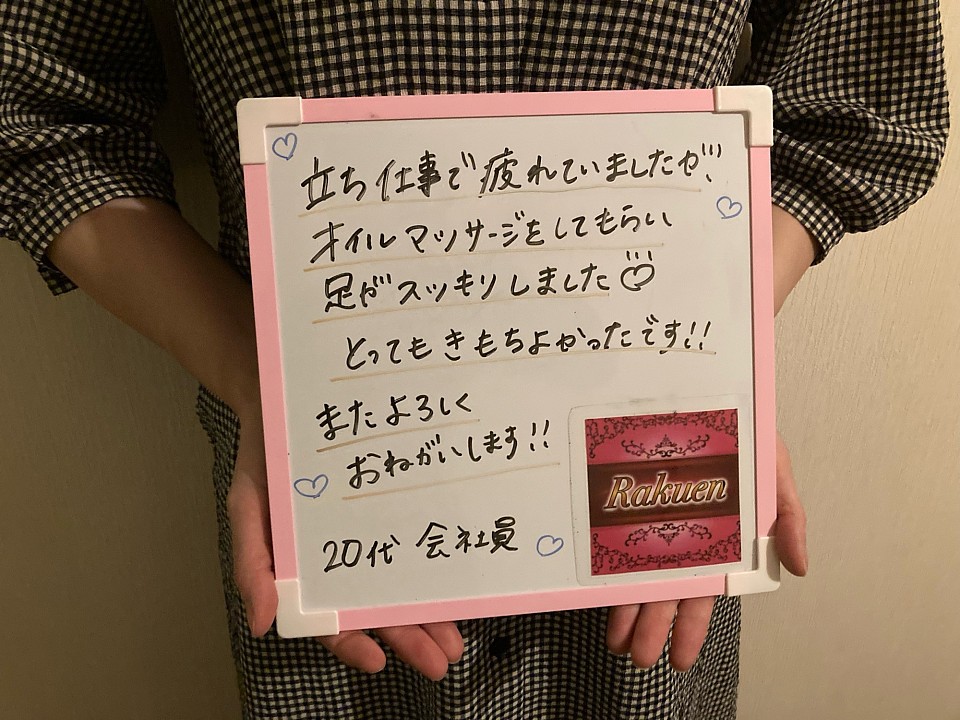 立ち仕事で疲れていましたが!!
オイルマッサージをしてもらい
足がスッキリしました♡
とってもきもちよかったです!!
またよろしく
おねがいします!!
20代 会社員
Rakuen